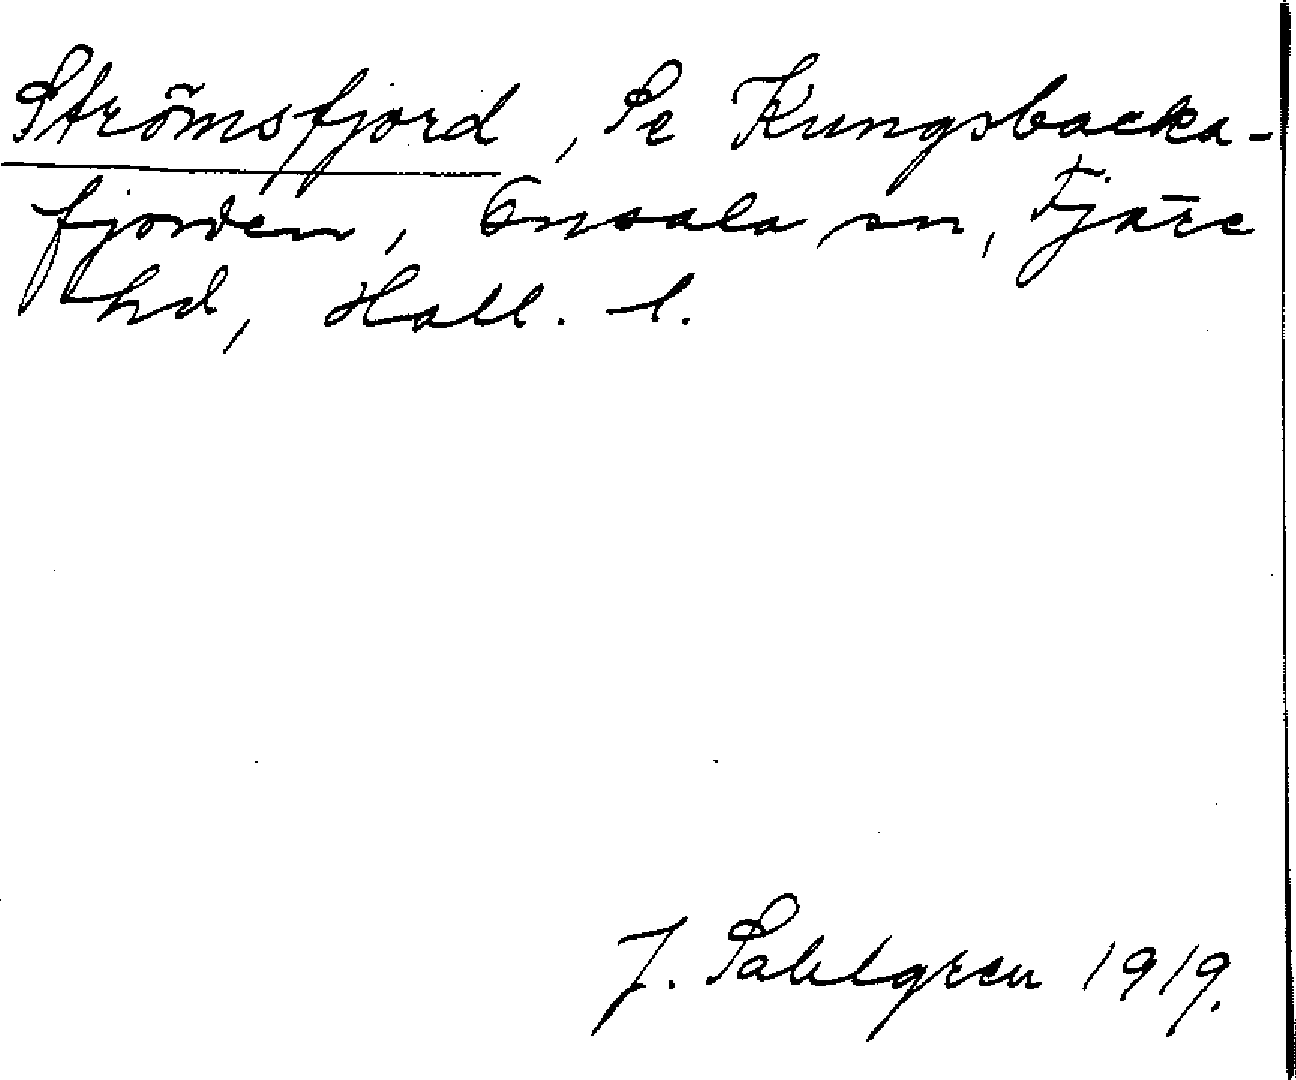 Strömsfjord, Se Kungsbacka-
fjorden, Onsala sn, Fjäre
hd, Hall. l.
J. Sahlgren 1919.